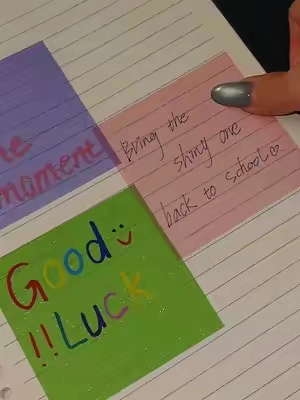 he
moment
Bring the
shiny one
back to school♡
Good :)
!!Luck